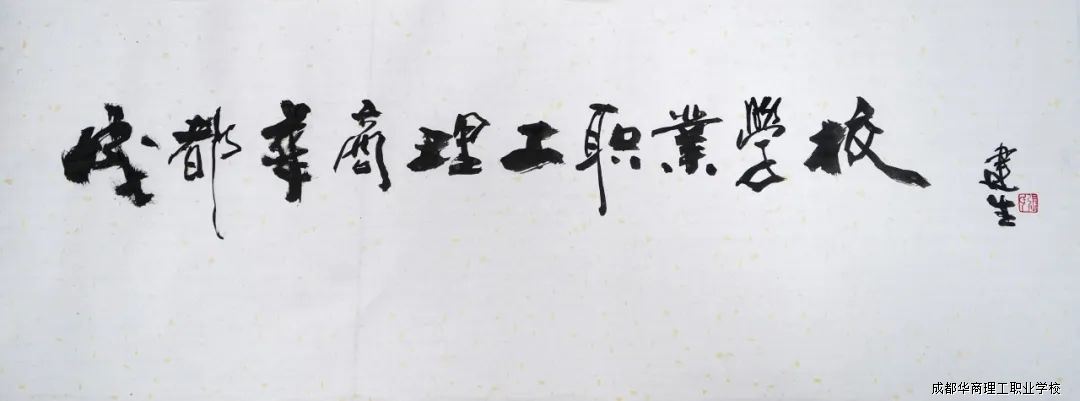 成都華商理工职業學校
建生
成都华商理工职业学校